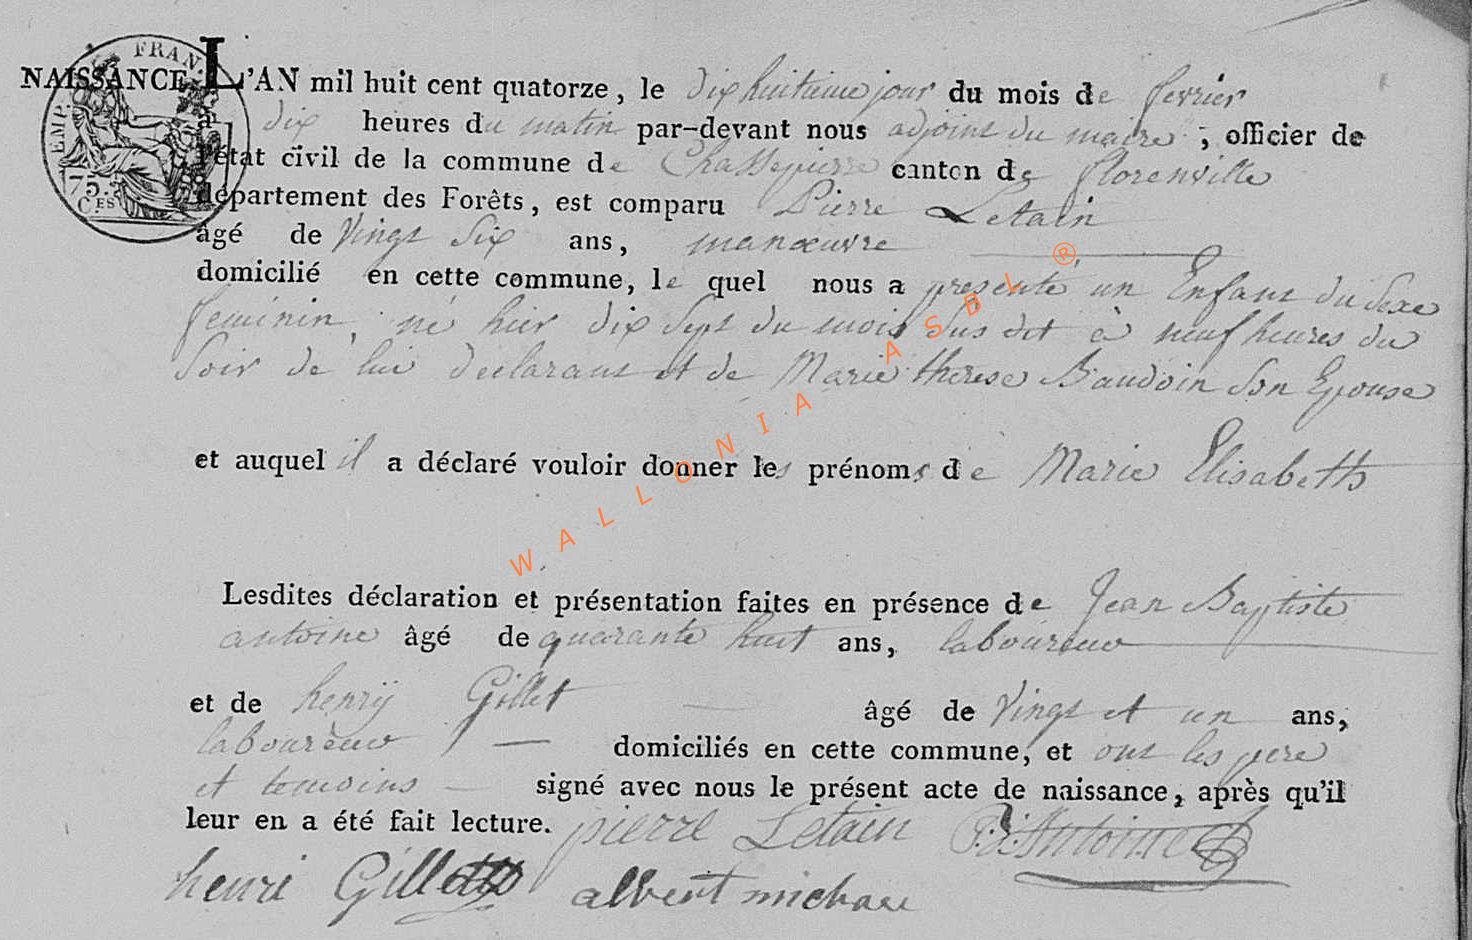 EMP. FRAN
75.
C.ES
NAISSANCE. L'AN mil huit cent quatorze, le dixhuitieme jour du mois de fevrier
à dix heures du matin par-devant nous adjoint du maire, officier de
l'état civil de la commune de Chassepierre canton de florenville
département des Forêts, est comparu Pierre Letain
âgé de Vingt Six ans, manœuvre
domicilié en cette commune, le quel nous a presenté un Enfant du Sexe
feminin, né hier dix Sept du mois Sus dit à neuf heures du
Soir de lui declarant et de Marie therese Baudoin Son Epouse
et auquel il a déclaré vouloir donner les prénoms de Marie Elisabeth
Lesdites déclaration et présentation faites en présence de Jean Baptiste
antoine âgé de quarante huit ans, laboureur
et de henrÿ Gillet âgé de Vingt et un ans,
laboureur domiciliés en cette commune, et ont les pere
et temoins signé avec nous le présent acte de naissance, après qu'il
leur en a été fait lecture. pierre Letain Antoine
henri Gillet albert
WALLONIA ASBL ®